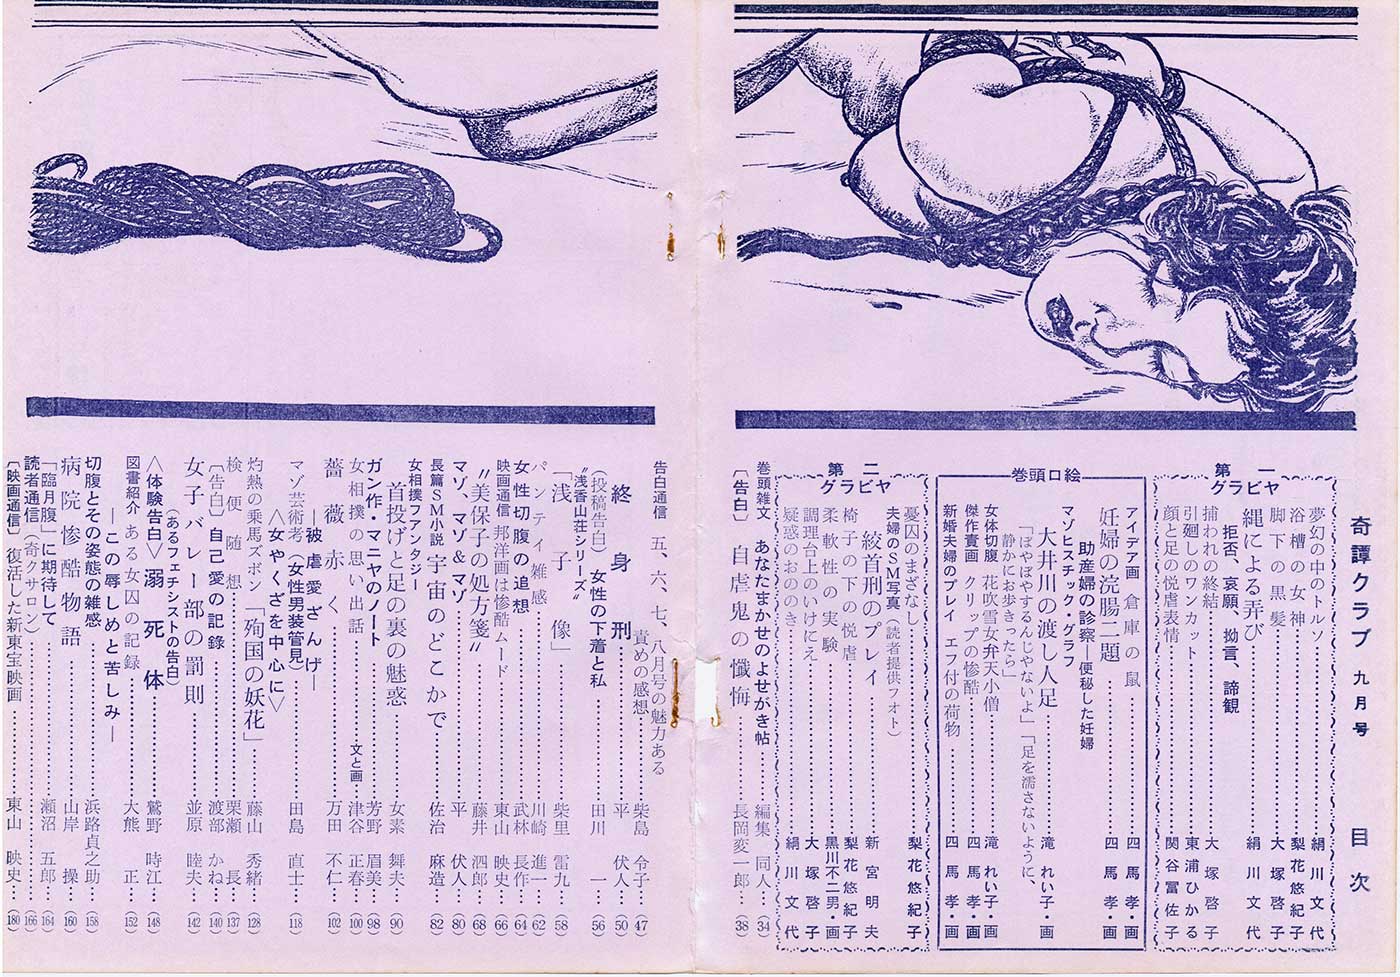 奇譚クラブ 九月号 目次
第一グラビヤ
夢幻の中のトルソ 絹川文代
浴槽の女神 梨花悠紀子
脚下の黒髪 大塚啓子
縄による弄び 絹川文代
拒否、哀願、拗言、諦観
捕われの終結 大塚啓子
引廻しのワンカット 東浦ひかる
顔と足の悦虐表情 関谷冨佐子
巻頭口絵
アイデア画 倉庫の鼠 四馬孝・画
妊婦の浣腸二題 四馬孝・画
助産婦の診察―便秘した妊婦
マゾヒスチック・グラフ
大井川の渡し人足 滝れい子・画
「ぼやぼやするんじやないよ」「足を濡さないように、
静かにお歩きったら」
女体切腹 花吹雪女弁天小僧 滝れい子・画
傑作責画 クリップの惨酷 四馬孝・画
新婚夫婦のプレイ エフ付の荷物 四馬孝・画
第二グラビヤ
憂囚のまなざし 梨花悠紀子
夫婦のSM写真(読者提供フォト)
絞首刑のプレイ 新宮明夫
椅子の下の悦虐 梨花悠紀子
柔軟性の実験 黒川不二男・画
調理台上のいけにえ 大塚啓子
疑惑のおののき 絹川文代
巻頭雑文 あなたまかせのよせがき帖 編集同人 (34)
〔告白〕 自虐鬼の懺悔 長岡変一郎 (38)
告白通信 五、六、七、八月号の魅力ある
責めの感想 柴島令子 (47)
終身刑 平伏人 (50)
(投稿告白) 女性の下着と私 田川一 (56)
〝浅香山荘シリーズ〟
「浅子像」 柴里雷九 (58)
パンティ雑感 川崎進一 (62)
女性切腹の追想 武林長作 (64)
映画通信 邦洋画は惨酷ムード 東山映史 (66)
〝美保子の処方箋〟 藤井四郎 (68)
マゾ、マゾ&マゾ 平伏人 (80)
長篇SM小説 宇宙のどこかで 佐治麻造 (82)
女相撲フアンタジー
首投げと足の裏の魅惑 女素舞夫 (90)
ガン作・マニヤのノート 芳野眉美 (98)
女相撲の思い出話 文と画 津谷正春 (100)
薔薇赤く 万田不仁 (102)
―被虐愛ざんげ―
マゾ芸術考(女性男装管見) 田島直士 (118)
△女やくざを中心に▽
灼熱の乗馬ズボン 「殉国の妖花」 藤山秀緒 (128)
検便随想 栗瀬長 (137)
〔告白〕 自己愛の記録 渡部かね (140)
女子バレー部の罰則 並原睦夫 (142)
(あるフェチシストの告白)
△体験告白▽ 溺死体 鷲野時江 (148)
図書紹介 ある女囚の記録 大熊正 (152)
―この辱しめと苦しみ―
切腹とその姿態の雑感 浜路貞之助 (158)
病院惨酷物語 山岸操 (160)
「臨月腹」に期待して 瀬沼五郎 (164)
読者通信(奇クサロン) (166)
〔映画通信〕 復活した新東宝映画 東山映史 (180)